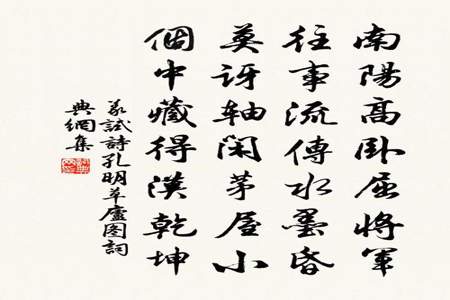 南陽高卧屈將軍
往事流傳水墨昏
莫訝轴闲茅屋小
個中藏得漢乾坤
義試詩孔明草廬图詞
典網集